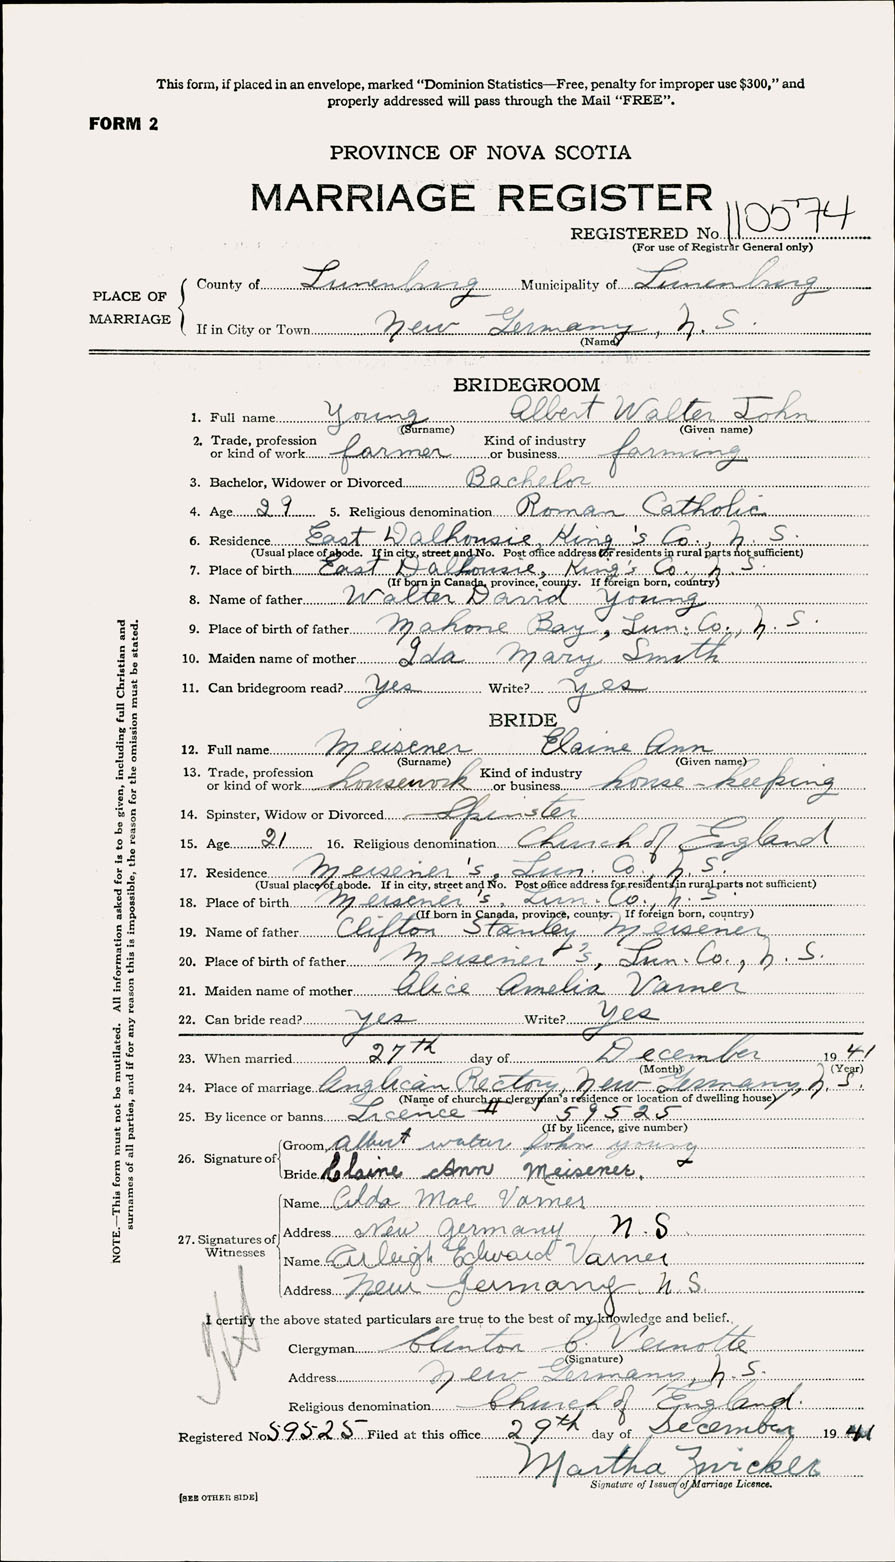 This form, if placed in an envelope, marked "Dominion Statistics—Free, penalty for improper use $300," and
properly addressed will pass through the Mail "FREE".
FORM 2
PROVINCE OF NOVA SCOTIA
MARRIAGE REGISTER
REGISTERED No. 110574
(For use of Registrar General only)
PLACE OF MARRIAGE
County of Lunenburg Municipality of Lunenburg
If in City or Town New Germany, N.S.
(Name)
BRIDEGROOM
1. Full name Young Albert Walter John
(Surname) (Given name)
2. Trade, profession or kind of work farmer Kind of industry or business farming
3. Bachelor, Widower or Divorced Bachelor
4. Age 29 5. Religious denomination Roman Catholic
6. Residence East Dalhousie, King's Co., N.S.
(Usual place of abode. If in city, street and No. Post office address for residents in rural parts not sufficient)
7. Place of birth East Dalhousie, King's Co., N.S.
(If born in Canada, province, county. If foreign born, country)
8. Name of father Walter David Young
9. Place of birth of father Mahone Bay, Lun. Co., N.S.
10. Maiden name of mother Ida Mary Smith
11. Can bridegroom read? Yes Write? yes
BRIDE
12. Full name Meisener Elaine Ann
(Surname) (Given name)
13. Trade, profession or kind of work housework Kind of industry or business house-keeping
14. Spinster, Widow or Divorced Spinster
15. Age 21 16. Religious denomination Church of England
17. Residence Meisener's, Lun. Co., N.S.
(Usual place of abode. If in city, street and No. Post office address for residents in rural parts not sufficient)
18. Place of birth Meisener's, Lun. Co., N.S.
(If born in Canada, province, county. If foreign born, country)
19. Name of father Clifton Stanley Meisener
20. Place of birth of father Meisener's, Lun. Co., N.S.
21. Maiden name of mother Alice Amelia Varner
22. Can bride read? yes Write? Yes
23. When married 27th day of December 1941
(Month) (Year)
24. Place of marriage Anglican Rectory, New Germany, N.S.
(Name of church or clergyman's residence or location of dwelling house)
25. By licence or banns Licence # 59525
(If by licence, give number)
26. Signature of
Groom Albert walter John young
Bride Elaine Ann Meisener.
27. Signatures of Witnesses
Name Alda Mae Varner
Address New Germany N.S
Name Arleigh Edward Varner
Address New Germany, N.S.
I certify the above stated particulars are true to the best of my knowledge and belief.
Clergyman Clinton C. Veinotte
(Signature)
Address New Germany, N.S.
Religious denomination Church of England.
Registered No. 59525 Filed at this office 29th day of December 1941
Martha Zwicker
Signature of Issuer of Marriage Licence.
[SEE OTHER SIDE]
NOTE.—This form must not be mutilated. All information asked for is to be given, including full Christian and
surnames of all parties, and if for any reason this is impossible, the reason for the omission must be stated.